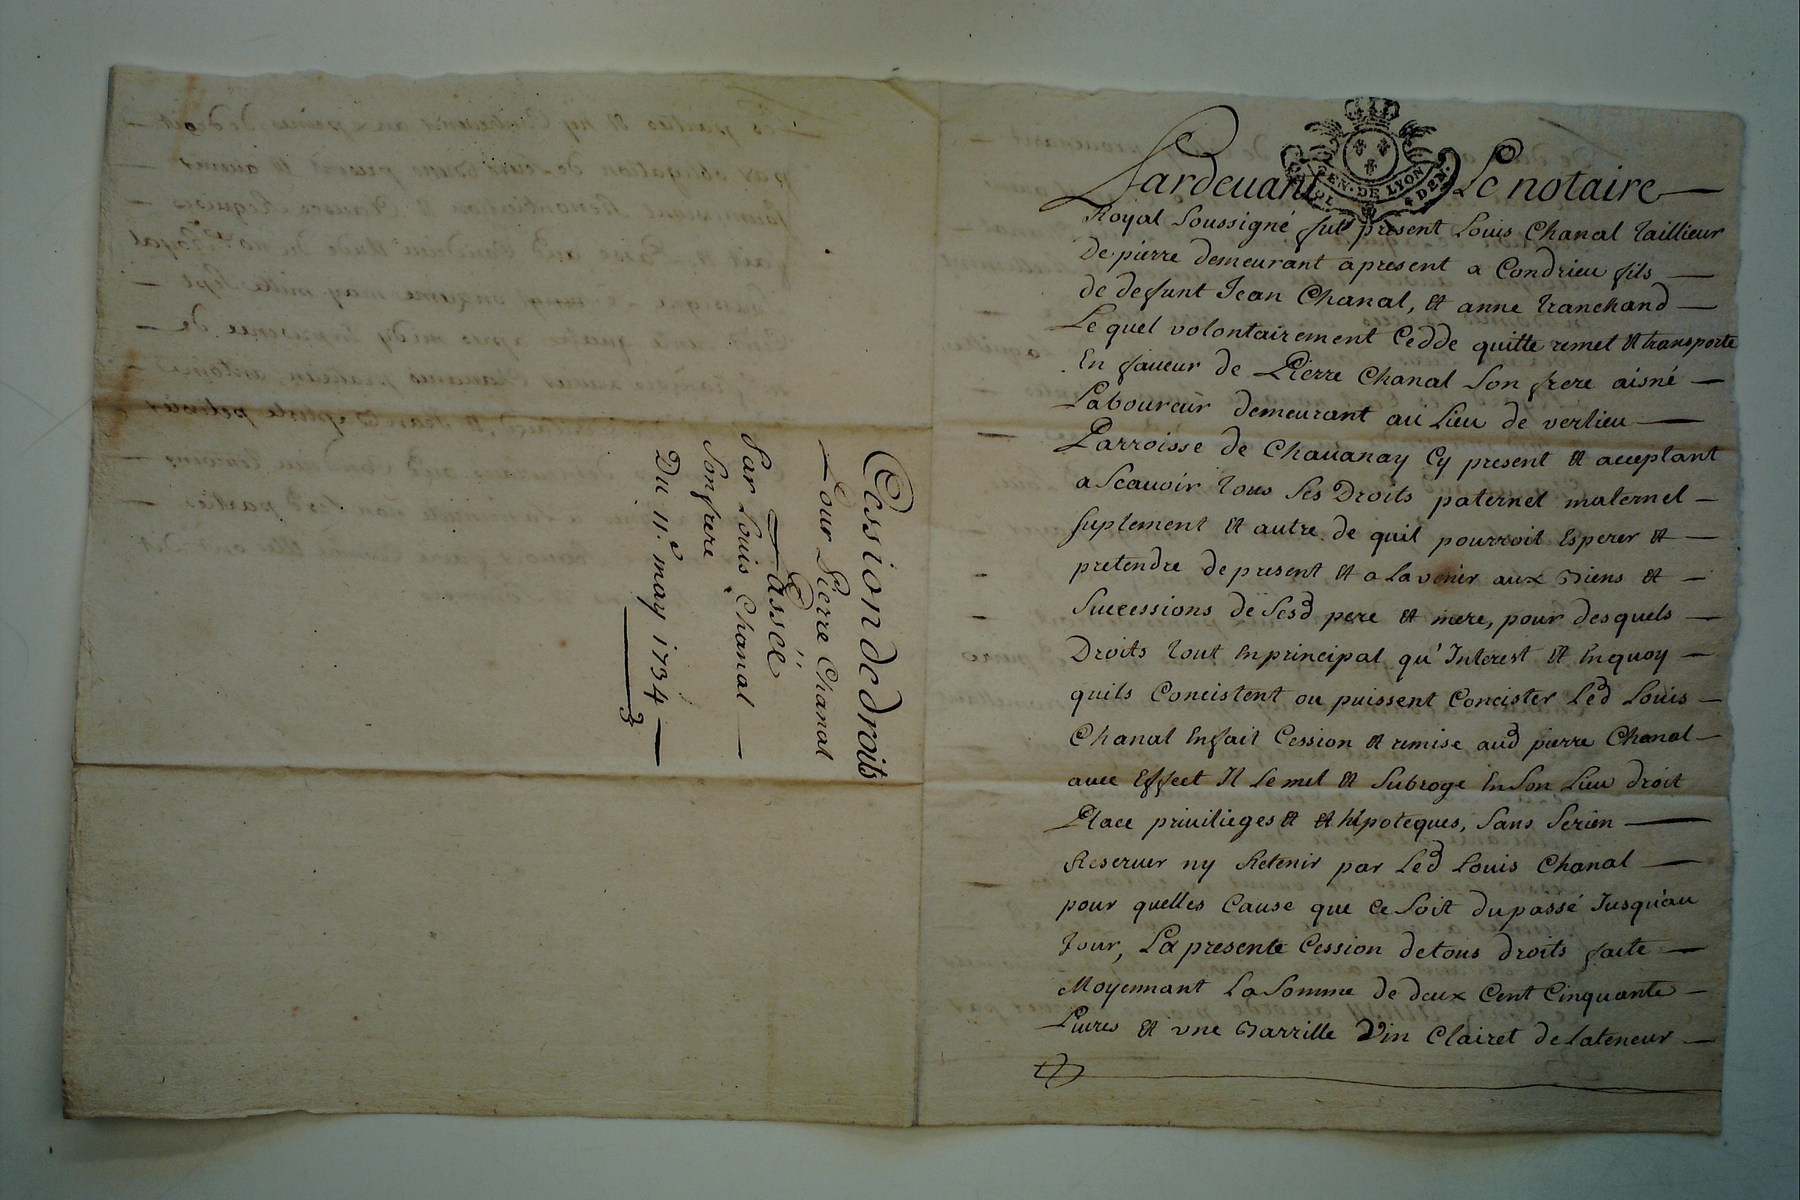 Cession de droits
Pour Pierre Chanal
Passée
Par Louis Chanal
Son frere
Du 11.e may 1734
GEN. DE LYON
Pardeuant Le notaire
Royal Soussigné fut present Louis Chanal tailleur
De pierre demeurant apresent a Condrieu fils
de deffunt Jean Chanal, et anne tranchand
Le quel volontairement Cedde quitte remet et transporte
En faueur de Pierre Chanal Son frere aisné
Laboureur demeurant au Lieu de verlieu
Parroisse de Chauanay Cy present et acceptant
a Scauoir tous Ses Droits paternel maternel
Suplement et autre de quil pourroit Esperer et
pretendre de present et a Lavenir aux Biens et
Successions de Sesd pere et mere, pour desquels
Droits tout En principal qu'Interest et En quoy
quils Concistent ou puissent Concister Led Louis
Chanal En fait Cession et remise aud pierre Chanal
auec Effect Il Le met et Subroge En Son Lieu droit
Place priuilieges et et hipoteques, Sans Serien
Reseruer ny Retenir par Led Louis Chanal
pour quelles Cause que Ce Soit du passé Jusqu'au
Jour, La presente Cession de tous droits faite
Moyennant La Somme de deux Cent Cinquante
Liures et vne Barrille Vin Clairet de La teneur